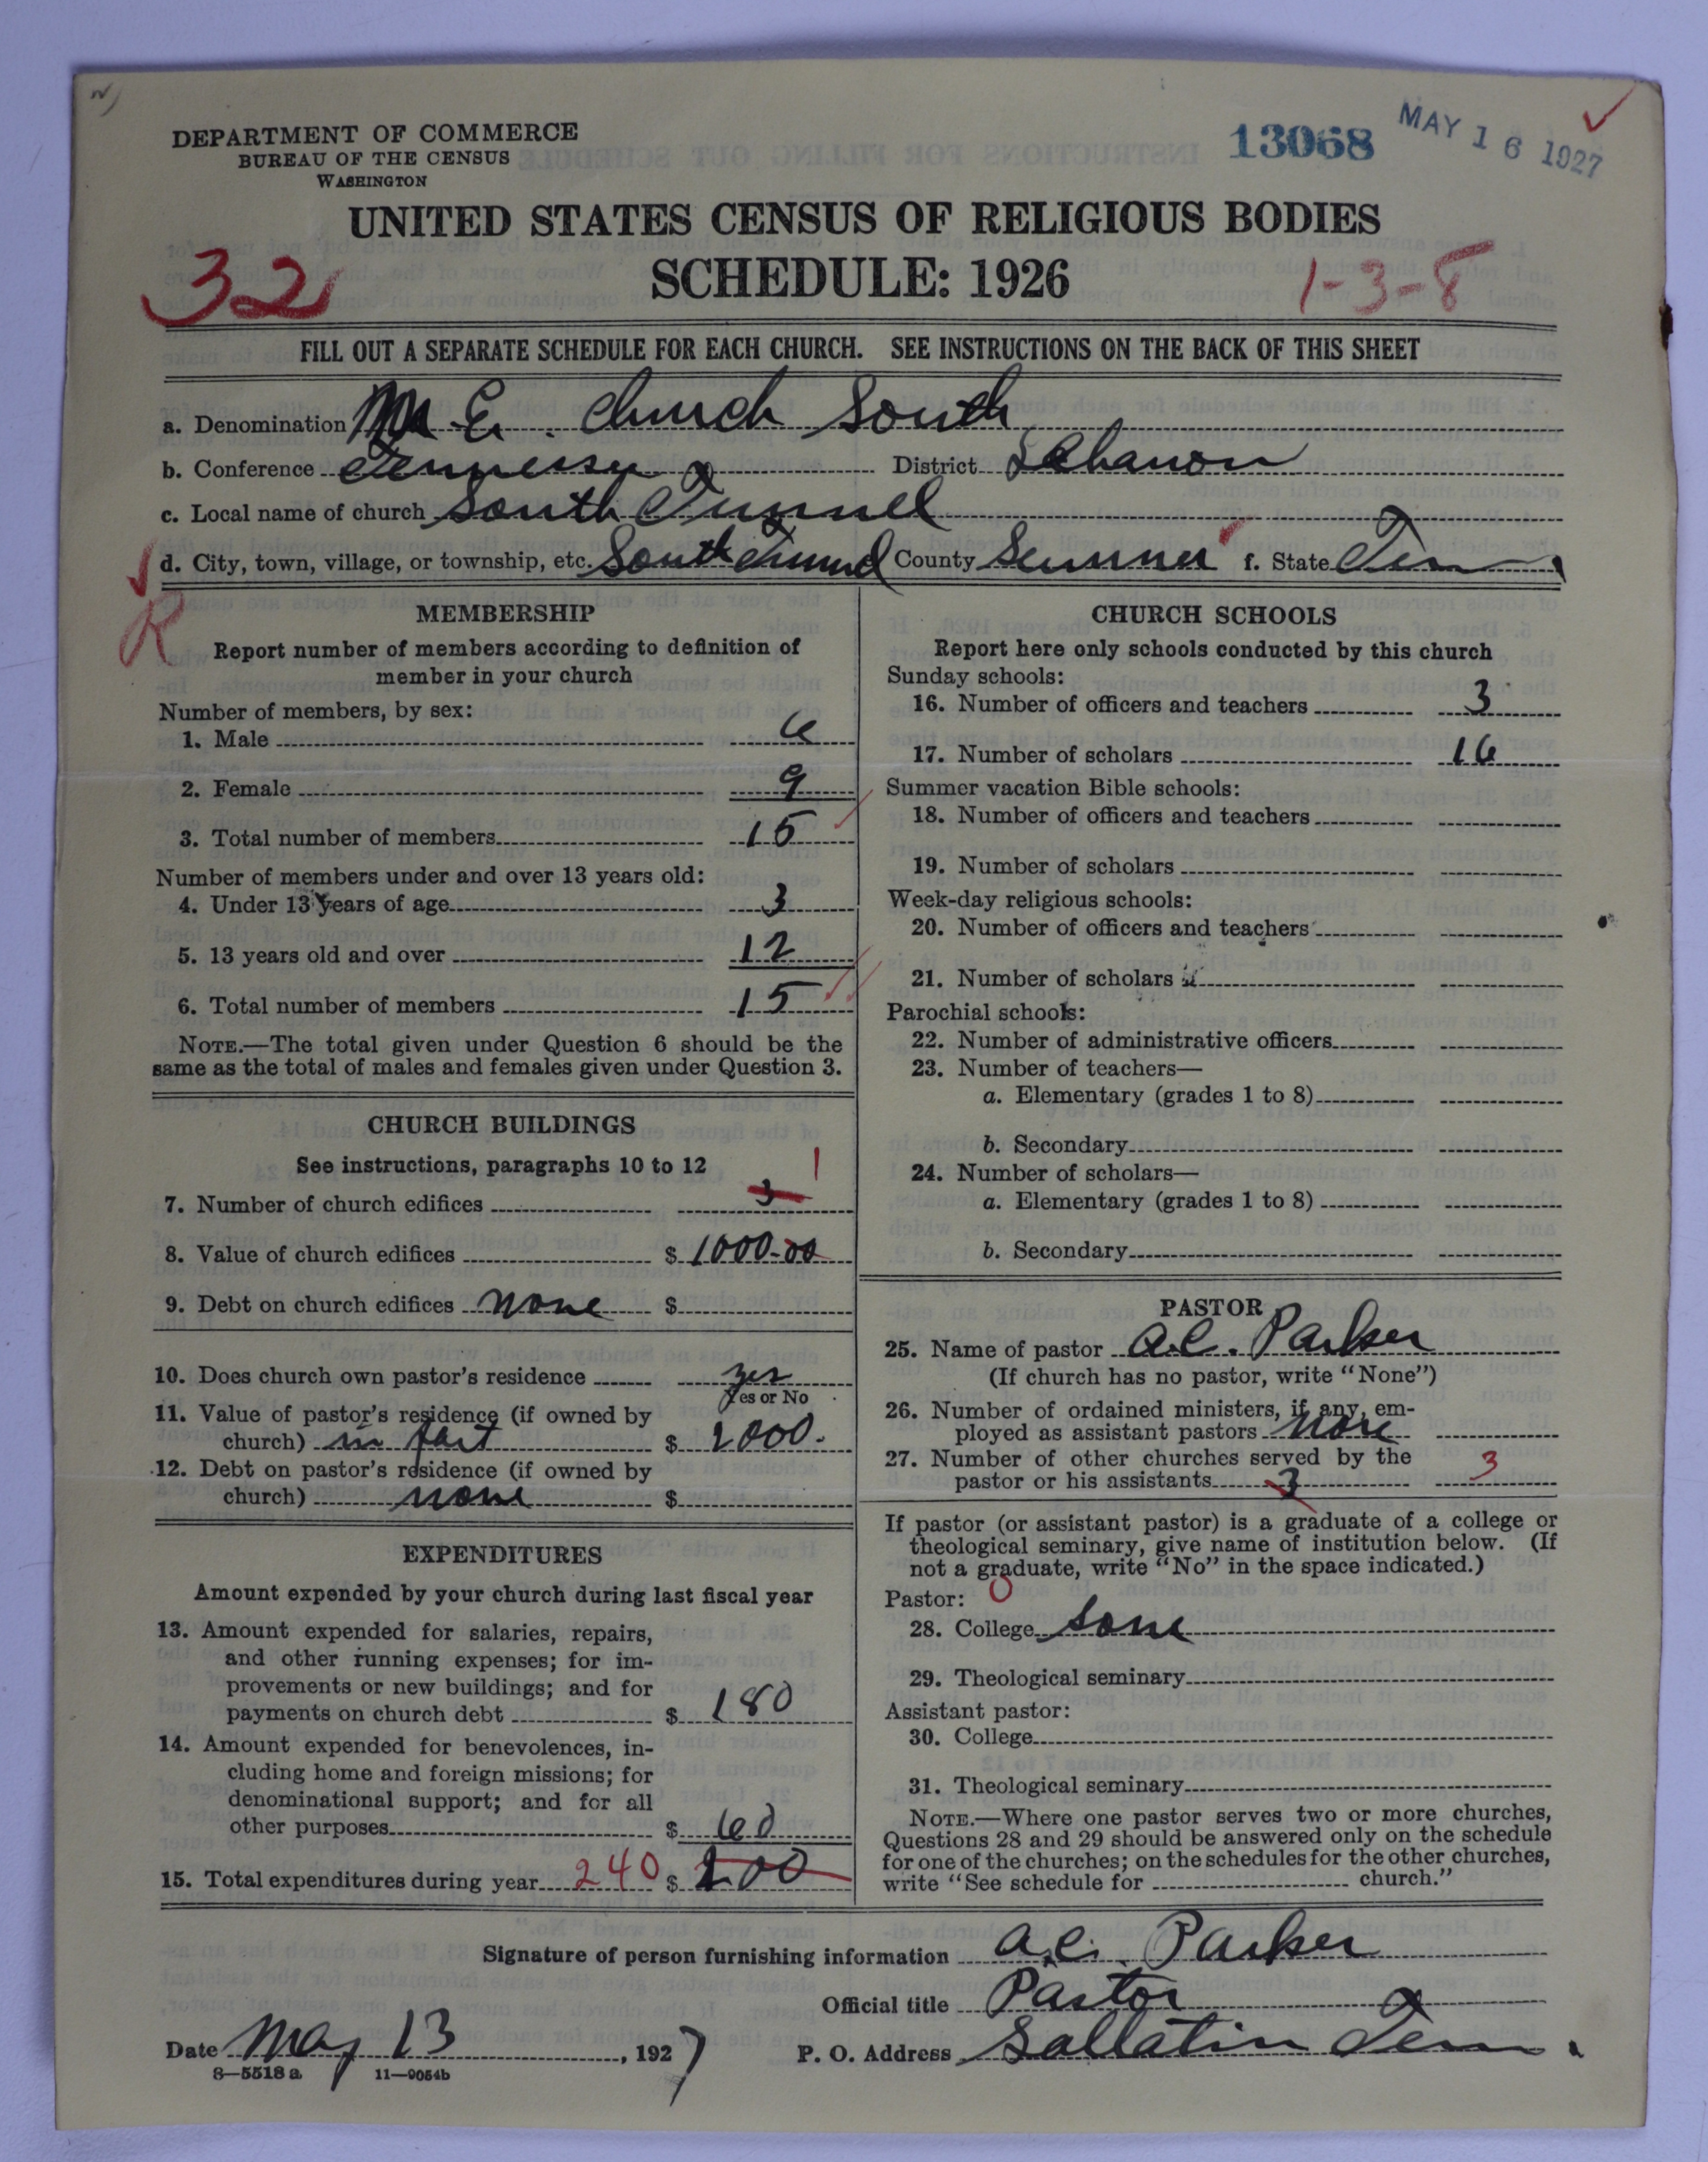 DEPARTMENT OF COMMERCE
BUREAU OF THE CENSUS
WASHINGTON
13068
MAY 16 1927
UNITED STATES CENSUS OF RELIGIOUS BODIES
SCHEDULE: 1926
32
1-3-8
FILL OUT A SEPARATE SCHEDULE FOR EACH CHURCH. SEE INSTRUCTIONS ON THE BACK OF THIS SHEET
a. Denomination M. E. Church South
b. Conference Tennessee District Lebanon
c. Local name of church South Tunnel
d. City, town, village, or township, etc. South Tunnel County Sumner f. State Ten
R
MEMBERSHIP
Report number of members according to definition of
member in your church
Number of members, by sex:
1. Male 6
2. Female 9
3. Total number of members 15
Number of members under and over 13 years old:
4. Under 13 years of age 3
5. 13 years old and over 12
6. Total number of members 15
NOTE.—The total given under Question 6 should be the
same as the total of males and females given under Question 3.
CHURCH BUILDINGS
See instructions, paragraphs 10 to 12
7. Number of church edifices 3 1
8. Value of church edifices $ 1000.00
9. Debt on church edifices none $
10. Does church own pastor's residence yes
Yes or No
11. Value of pastor's residence (if owned by
church) in part $ 2000.
12. Debt on pastor's residence (if owned by
church) none $
EXPENDITURES
Amount expended by your church during last fiscal year
13. Amount expended for salaries, repairs,
and other running expenses; for im-
provements or new buildings; and for
payments on church debt $ 180
14. Amount expended for benevolences, in-
cluding home and foreign missions; for
denominational support; and for all
other purposes $ 60
15. Total expenditures during year 240 $ 200
CHURCH SCHOOLS
Report here only schools conducted by this church
Sunday schools:
16. Number of officers and teachers 3
17. Number of scholars 16
Summer vacation Bible schools:
18. Number of officers and teachers
19. Number of scholars
Week-day religious schools:
20. Number of officers and teachers
21. Number of scholars
Parochial schools:
22. Number of administrative officers
23. Number of teachers—
a. Elementary (grades 1 to 8)
b. Secondary
24. Number of scholars—
a. Elementary (grades 1 to 8)
b. Secondary
PASTOR
25. Name of pastor A.C. Parker
(If church has no pastor, write "None")
26. Number of ordained ministers, if any, em-
ployed as assistant pastors none
27. Number of other churches served by the
pastor or his assistants 3 3
If pastor (or assistant pastor) is a graduate of a college or
theological seminary, give name of institution below. (If
not a graduate, write "No" in the space indicated.)
Pastor: 0
28. College some
29. Theological seminary
Assistant pastor:
30. College
31. Theological seminary
NOTE.—Where one pastor serves two or more churches,
Questions 28 and 29 should be answered only on the schedule
for one of the churches; on the schedules for the other churches,
write "See schedule for church."
Signature of person furnishing information A.C. Parker
Official title Pastor
Date May 13, 1927 P. O. Address Gallatin Ten.
8—5518 a 11—9054b